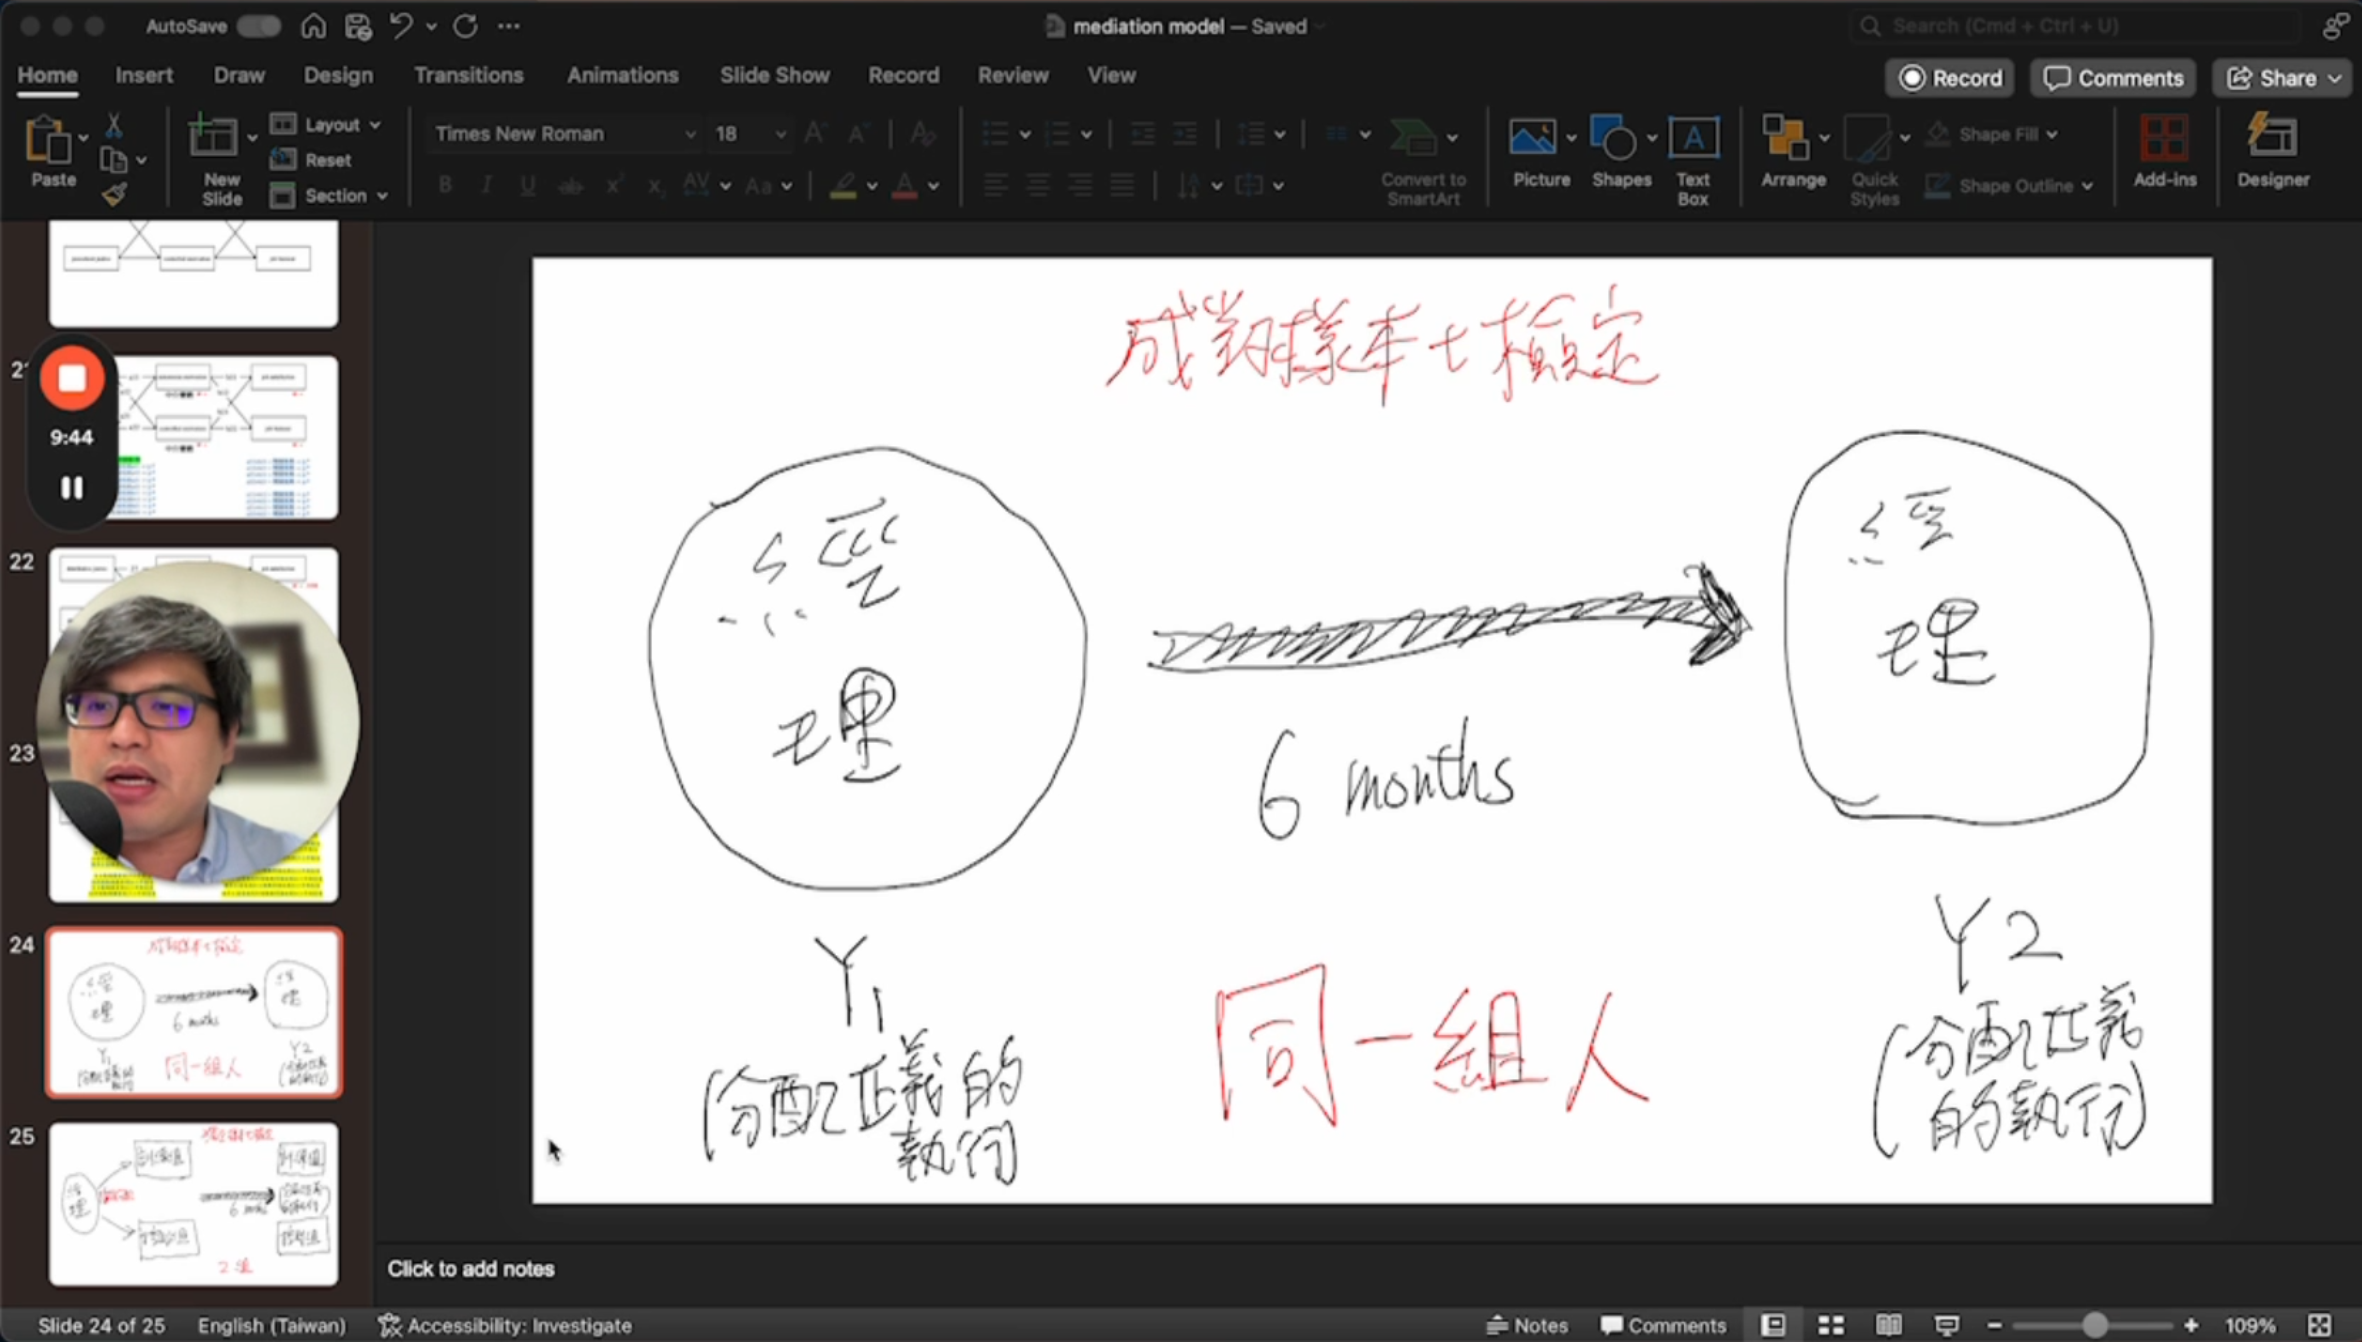 AutoSave
mediation model — Saved
Search (Cmd + Ctrl + U)
Home Insert Draw Design Transitions Animations Slide Show Record Review View
Record Comments Share
Paste
New Slide
Layout
Reset
Section
Times New Roman 18
Convert to SmartArt
Picture
Shapes
Text Box
Arrange
Quick Styles
Shape Fill
Shape Outline
Add-ins
Designer
9:44
22
23
24
成對樣本t檢定
經理
6 months
經理
Y1
Y2
同一組人
25
成對樣本t檢定
經
理
6 months
經
理
Y1
(分配正義的
執行)
同一組人
Y2
(分配正義
的執行)
Click to add notes
Slide 24 of 25 English (Taiwan) Accessibility: Investigate
Notes Comments 109%